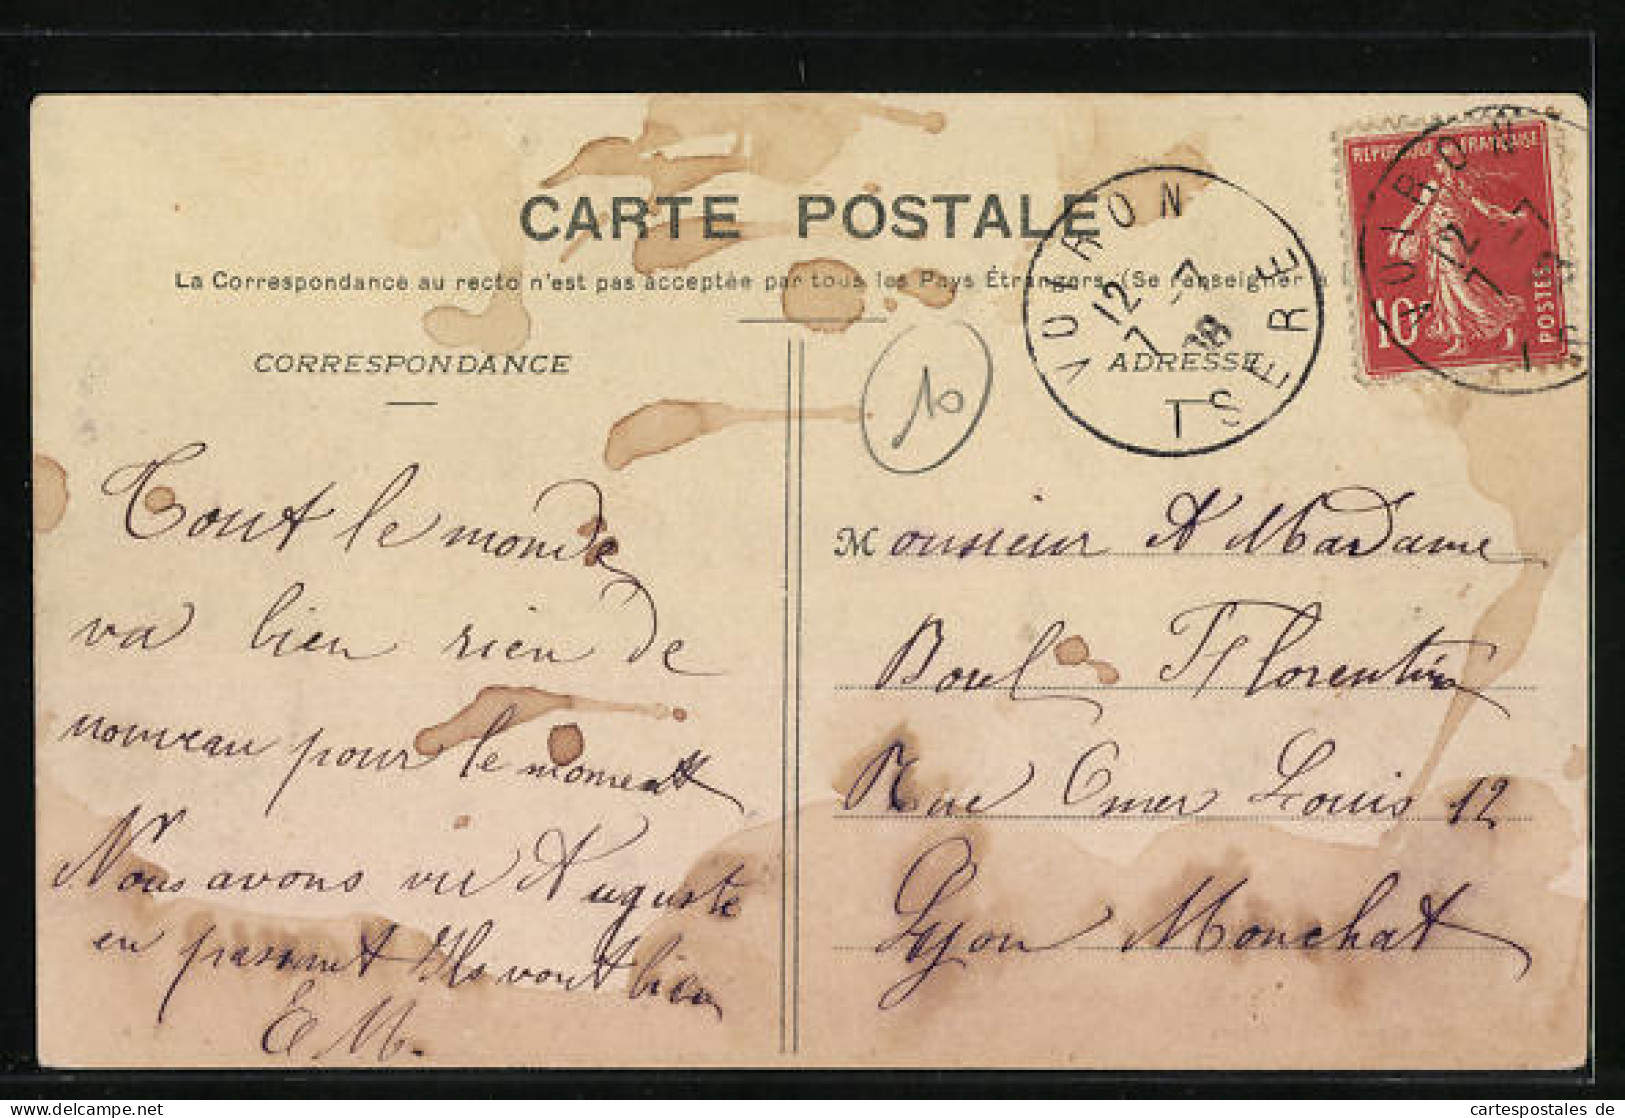 CARTE POSTALE
La Correspondance au recto n'est pas acceptée par tous les Pays Étrangers. (Se renseigner à
CORRESPONDANCE
ADRESSE
REPUBLIQUE FRANÇAISE
10
POSTES
VOIRON
12
7 -7
08
ISERE
VOIRON
12
7 -7
10
Tout le monde
va bien rien de
nouveau pour le moment
Nous avons vu Auguste
en passant Ils vont bien
E M.
Monsieur et Madame
Boul Florentin
Rue Omer Louis 12
Lyon Monchat
cartespostales de